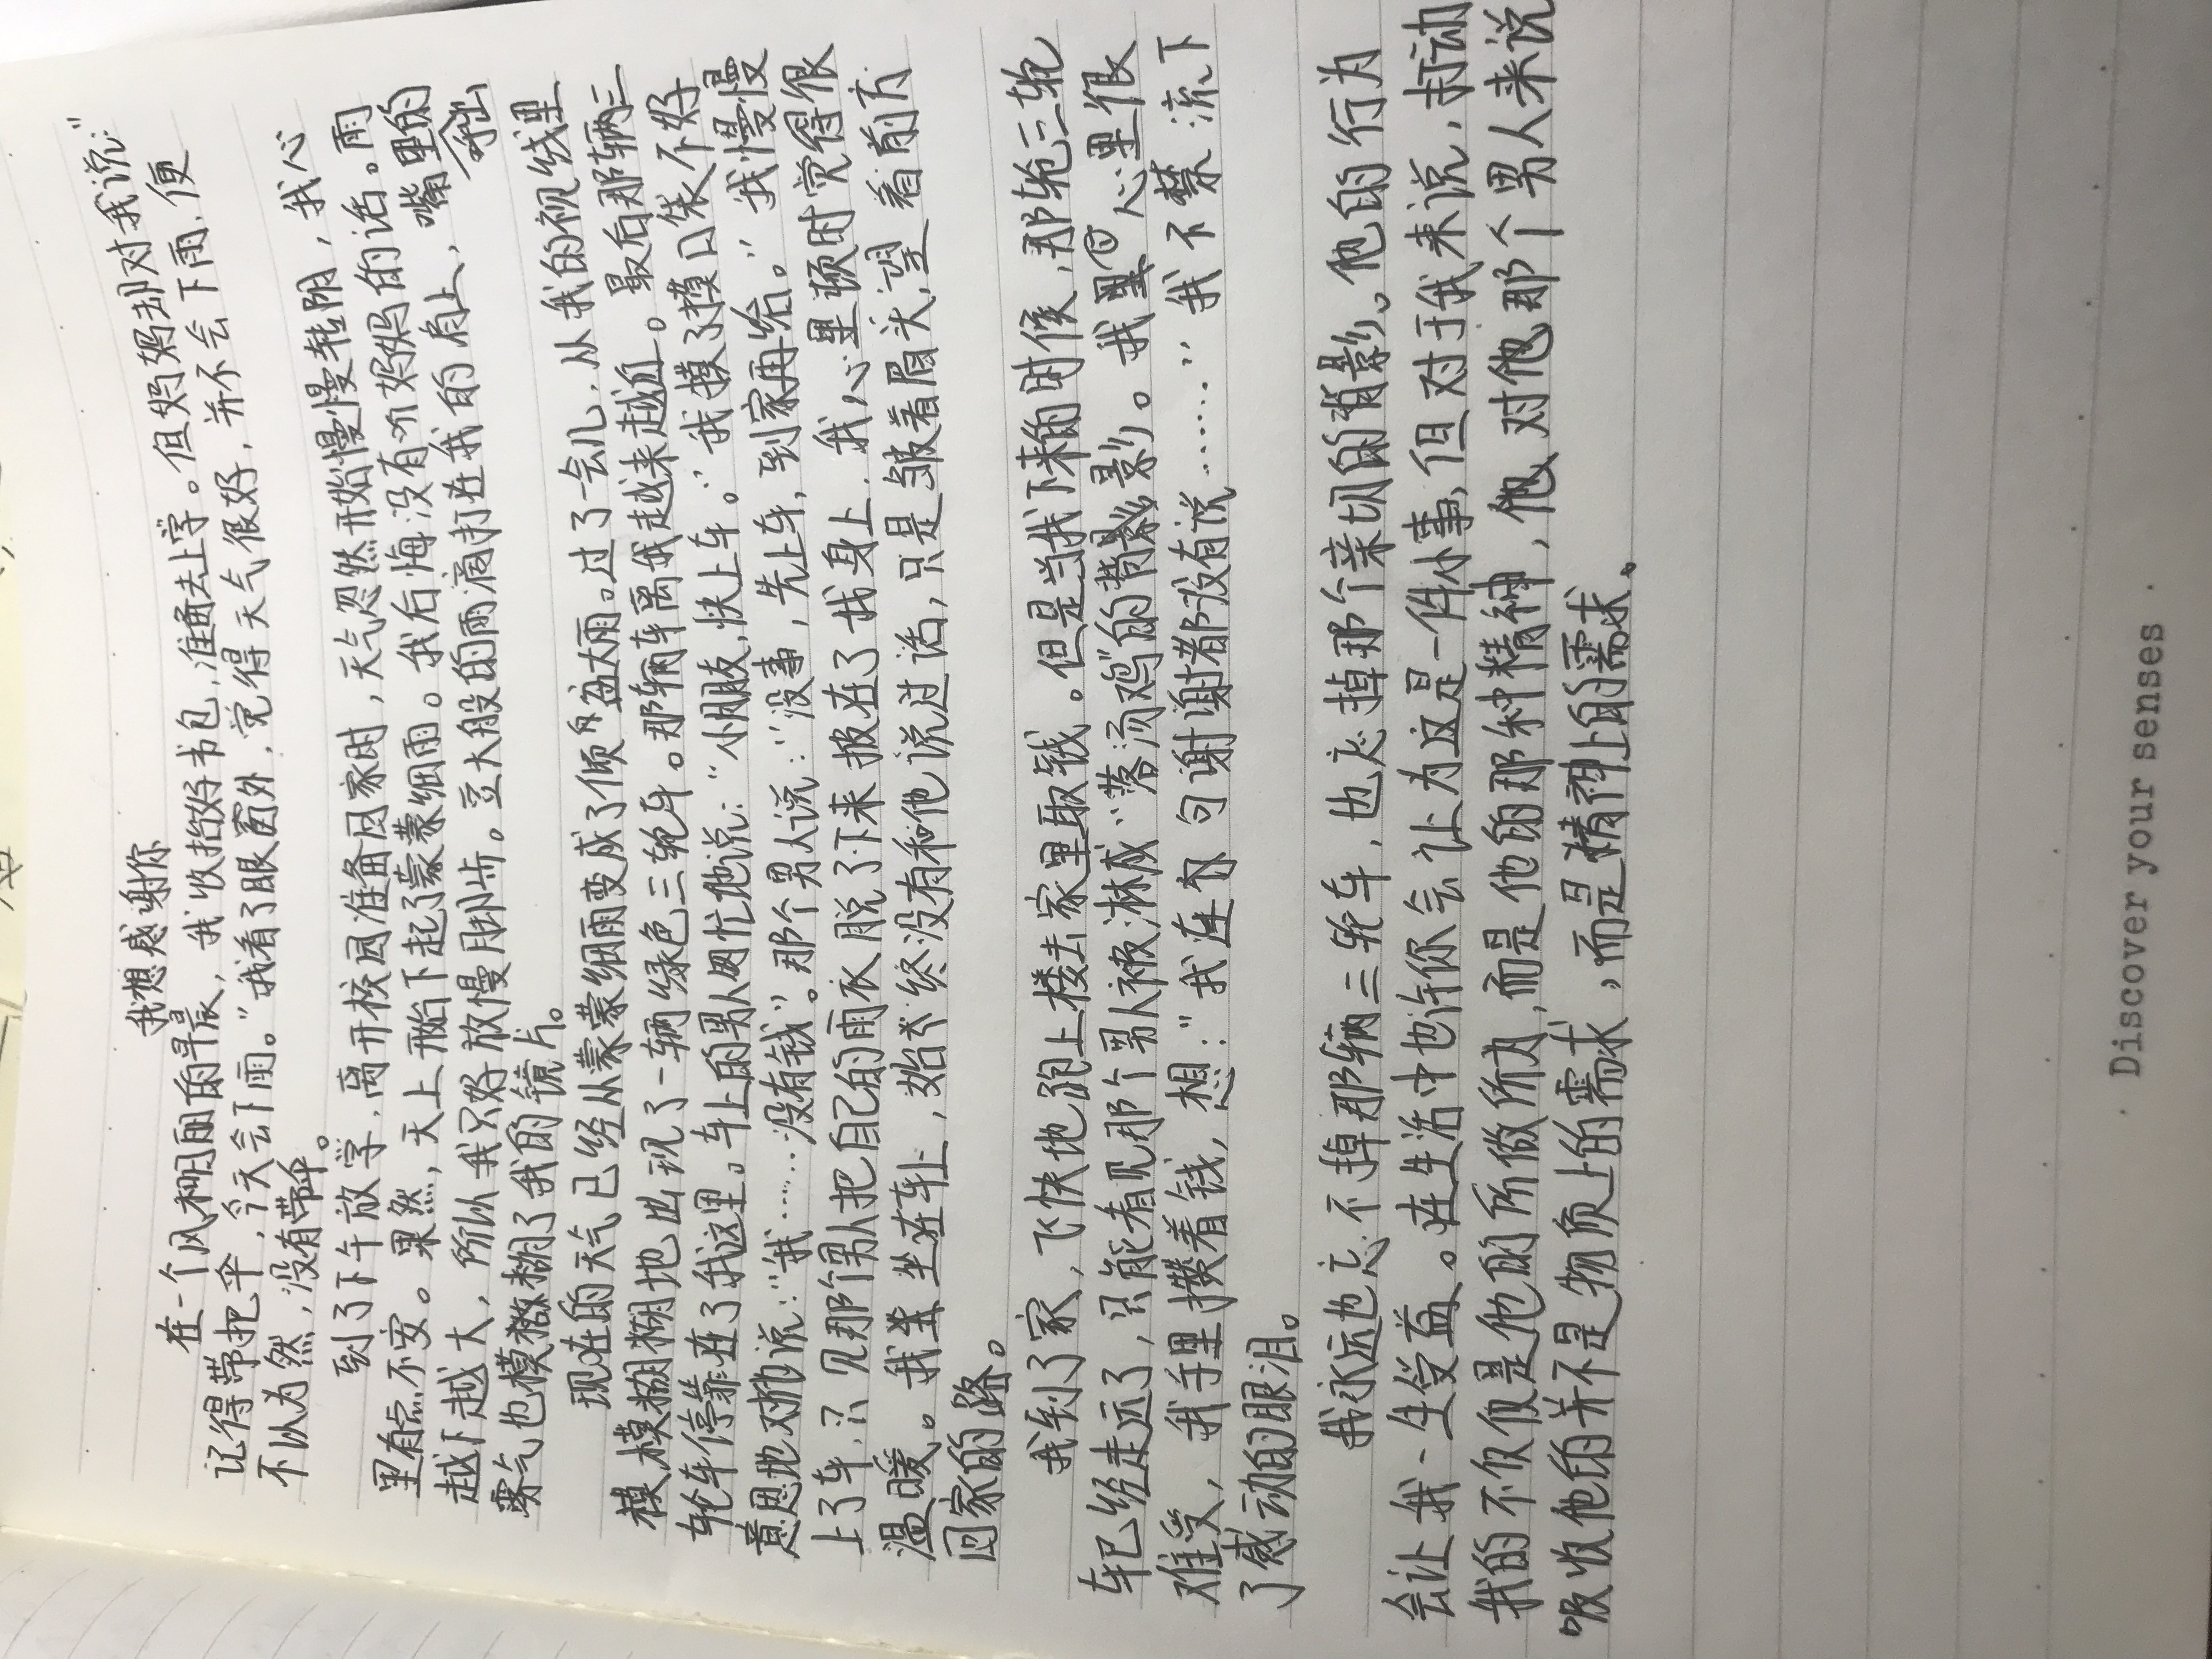 我想感谢你
在一个风和日丽的早晨，我收拾好书包，准备去上学。但妈妈却对我说：“
记得带把伞，今天会下雨。”我看了眼窗外，觉得天气很好，并不会下雨，便
不以为然，没有带伞。
到了下午放学，离开校园准备回家时，天气忽然开始慢慢转阴，我心
里有点不安。果然，天上开始下起了蒙蒙细雨。我后悔没有听妈妈的话。雨
越下越大，所以我只好放慢脚步。豆大般的雨滴打在我的肩上，嘴里的
雾气也模糊了我的镜片。
现在的天气已经从蒙蒙细雨变成了倾盆大雨。过了一会儿，从我的视线里
模模糊糊地出现了一辆绿色三轮车。那辆车离我越来越近。最后那辆三
轮车停靠在了我这里。车上的男人匆忙地说：“小朋友，快上车。”我摸了摸口袋，不好
意思地对他说：“我……没有钱”。那个男人说：“没事，先上车，到家再给。”我慢慢
上了车，只见那个男人把自己的雨衣脱了下来披在了我身上，我心里顿时觉得很
温暖。我坐在车上，始终没有和他说过话，只是皱着眉头，望着前方
回家的路。
我到了家，飞快地跑上楼去家里取钱。但是当我下来的时候，那轮三轮
车已经走远了，只能看见那个男人被淋成“落汤鸡”的背影。我心里很
难受，我手里攥着钱，想：“我连句谢谢都没有说……”我不禁流下
了感动的眼泪。
我永远也忘不掉那辆三轮车，也忘掉那个亲切的背影。他的行为
会让我一生受益。在生活中也许你会让为这是一件小事，但对于我来说，打动
我的不仅仅是他的所做所为，而是他的那种精神，他对他那个男人来说
吸收他的并不是物质上的需求，而是精神上的需求。
Discover your senses